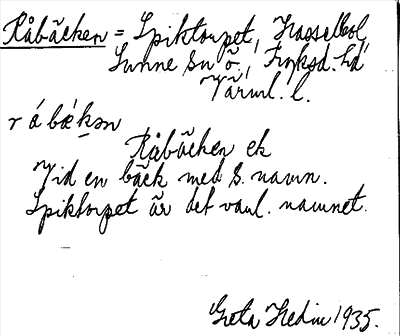 Råbäcken = Spiktorpet, Hasselbol
Sunne sn ö., Fryksd. hd
Värml. l.
r á bæ̀kən
Råbäcken ek
Vid en bäck med s. namn.
Spiktorpet är det vanl. namnet.
Greta Hedin 1935.